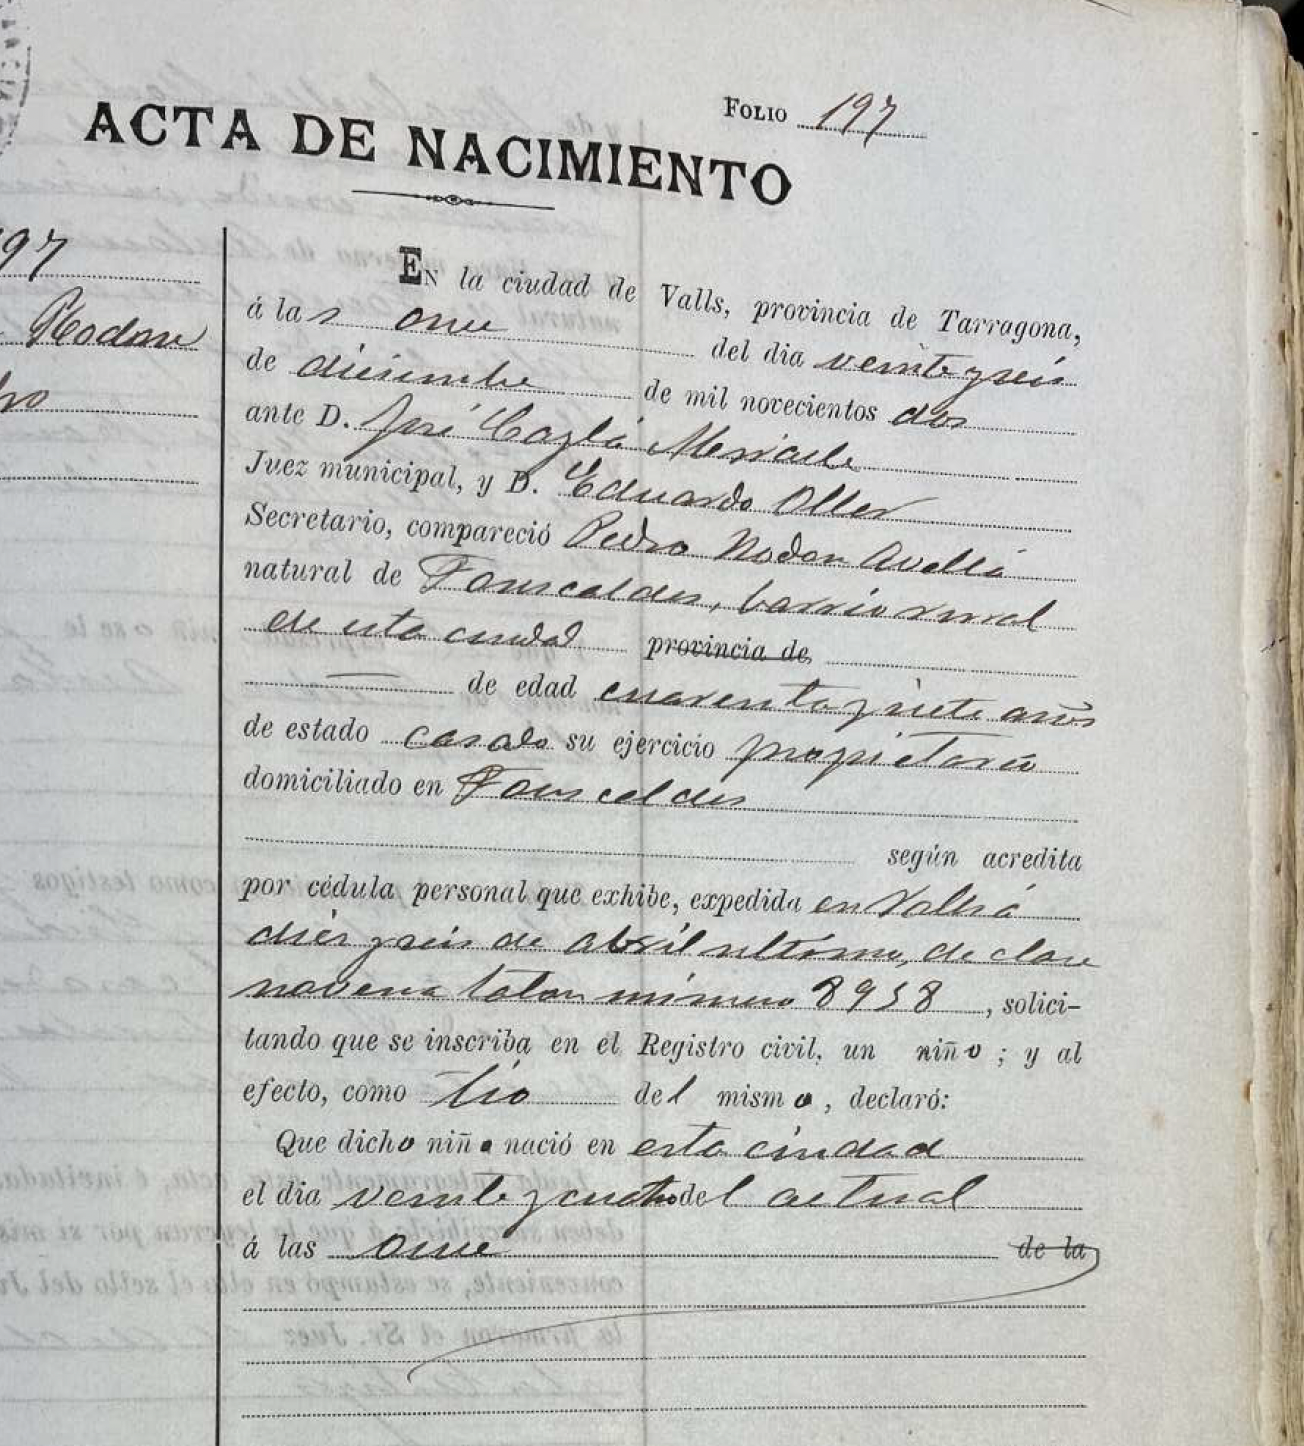 FOLIO 197
ACTA DE NACIMIENTO
197
EN la ciudad de Valls, provincia de Tarragona,
á las once del dia veinte y seis
de diciembre de mil novecientos dos
ante D. José
Juez municipal, y D. Eduardo Oller
Secretario, compareció Pedro Rodon Avellá
natural de Fonscaldes, barrio rural
de esta ciudad provincia de
de edad cuarenta y siete años
de estado casado su ejercicio propietario
domiciliado en Fonscaldes
según acredita
por cédula personal que exhibe, expedida en Valls á
diez y seis de abril ultimo, de clase
novena talon número 8958, solici-
tando que se inscriba en el Registro civil, un niño; y al
efecto, como tio del mismo, declaró:
Que dicho niño nació en esta ciudad
el dia veinte y cuatro del actual
á las once de la